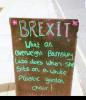 BREXIT
What an
overweight Burnsury
Lass does when she
Sits on a white
Plastic garden
chair!